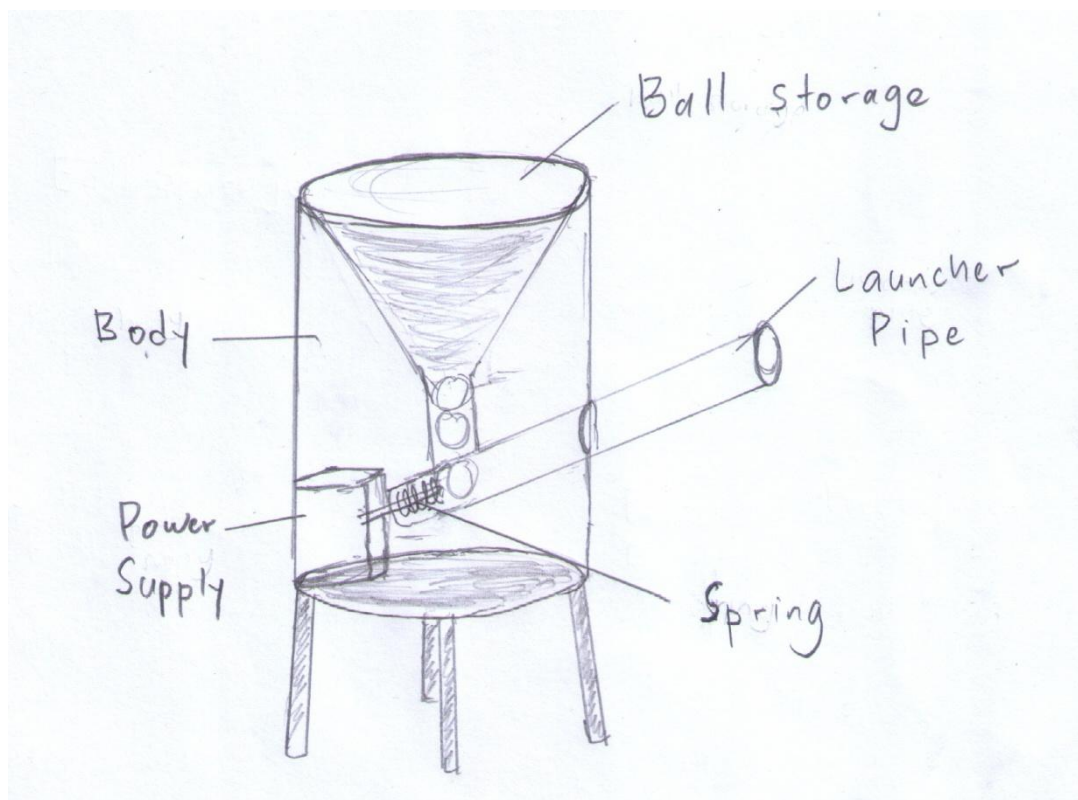 Ball storage
Launcher
Pipe
Body
Power
Supply
Spring